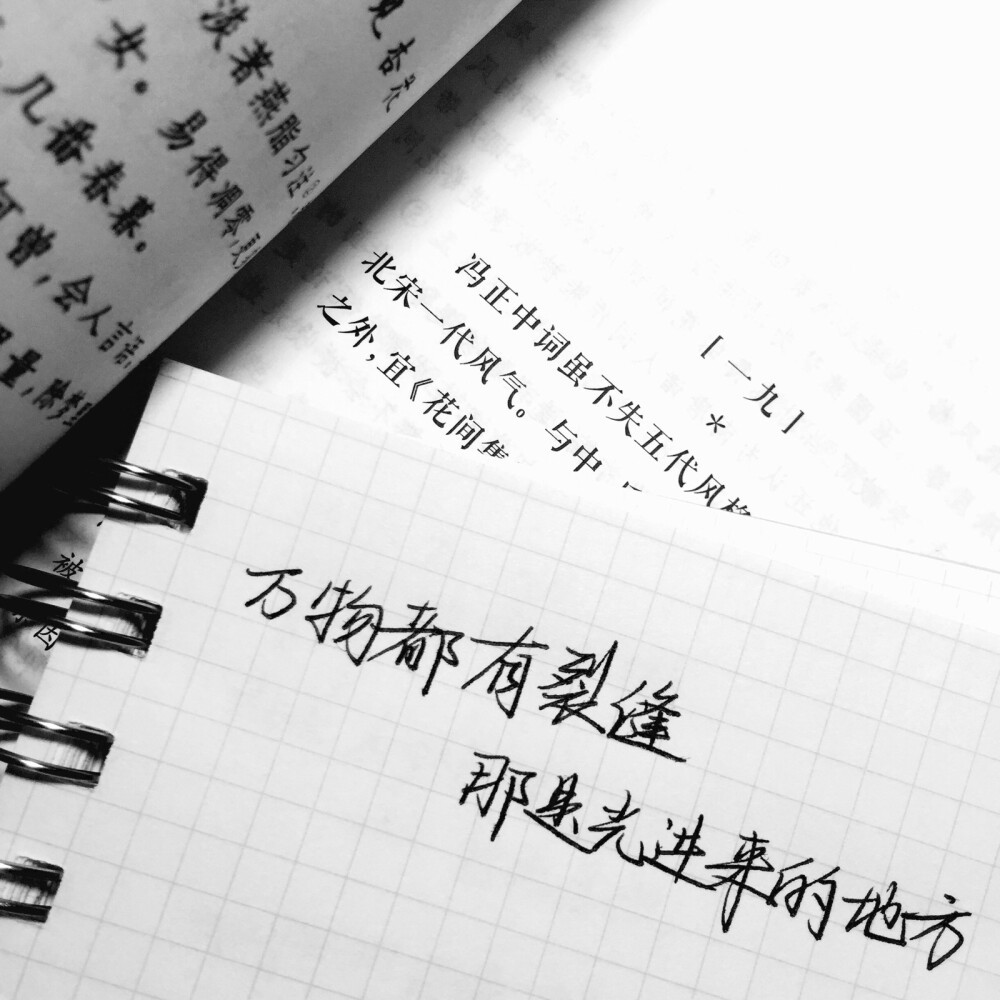 见杏花
淡著燕脂匀注
女。易得凋零
几番春暮。
何曾，会人言语
量，除梦里
［一九］
*
冯正中词虽不失五代风格
北宋一代风气。与中、
之外，宜《花间集
被
因
万物都有裂缝
那是光进来的地方